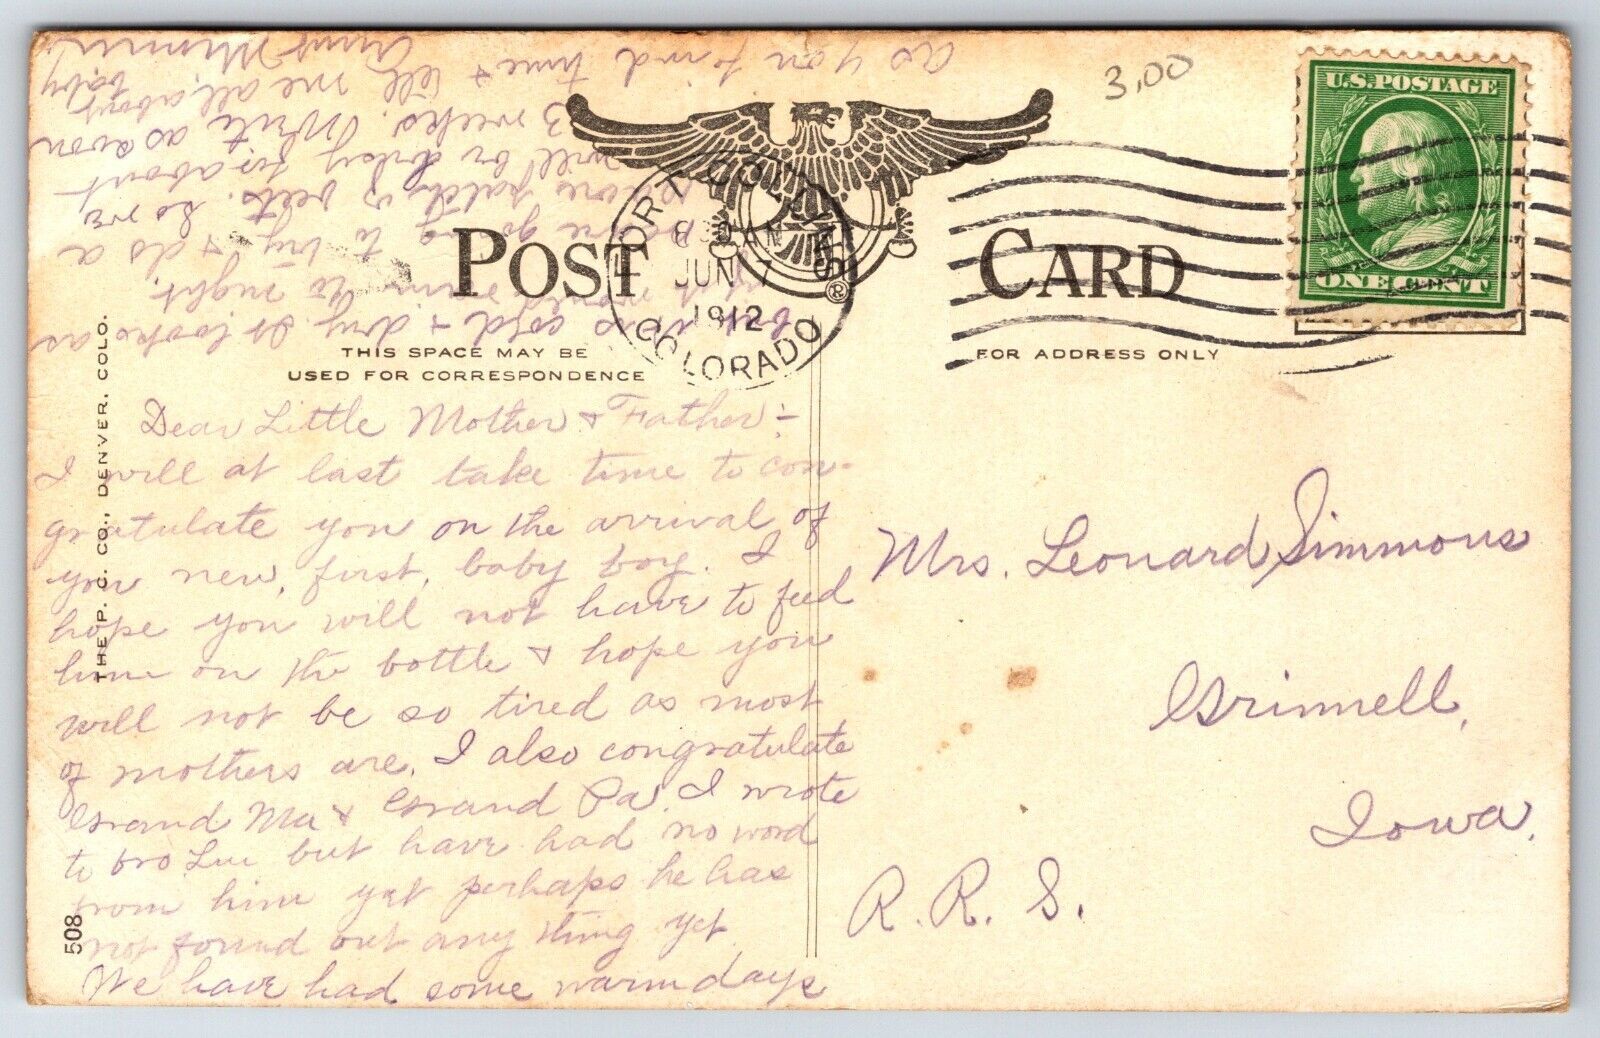 3.00
U.S. POSTAGE
ONE CENT
POST CARD
FORT COLLINS
JUN 7
1912
COLORADO
THIS SPACE MAY BE
USED FOR CORRESPONDENCE
FOR ADDRESS ONLY
THE P. C. CO., DENVER, COLO.
508
Dear Little Mother & Father:-
I will at last take time to con-
gratulate you on the arrival of
you new, first, baby boy. I
hope you will not have to feed
him on the bottle & hope you
will not be so tired as most
of mothers are. I also congratulate
Grand Ma & Grand Pa. I wrote
to bro Lue but have had no word
from him yet perhaps he has
not found out any thing yet.
We have had some warm days
but it is cold & dry. It looks as
it would rain to night.
going to try & do a
beets. So we
will be busy for about
3 weeks. Write as soon
as you find time & tell me all about
baby
Aunt Minnie
Mrs. Leonard Simmons
Grinnell,
Iowa.
R. R. 5.